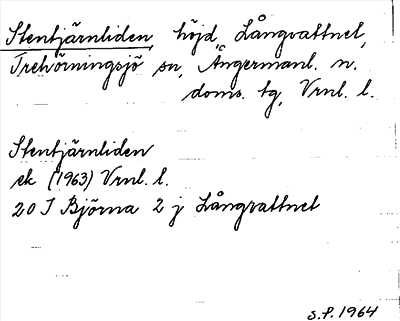 Stentjärnliden, höjd, Långvattnet,
Trehörningsjö sn, Ångermanl. n.
doms. tg, Vrnl. l.
Stentjärnliden
ek (1963) Vrnl. l.
20 I Björna 2 j Långvattnet
S.P. 1964